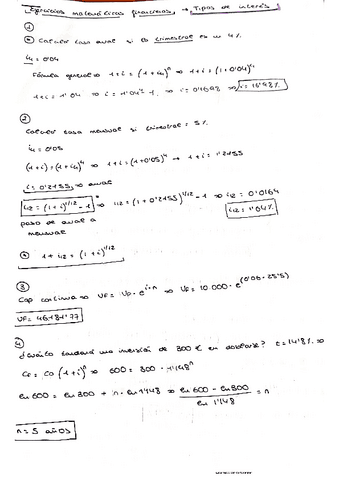 Ejercicios matemáticas financieras → Tipos de interés
1
Calcular tasa anual si la trimestral es un 4%
i4 = 0'04
Fórmula general → 1+i = (1+i4)^n ⇒ 1+i = (1+0'04)^4
1+i = 1'04^4 ⇒ i = 1'04^4 - 1 ⇒ i = 0'1698 ⇒ i = 16'98%
2
Calcular tasa mensual si trimestral = 5%
i4 = 0'05
(1+i) = (1+i4)^4 ⇒ 1+i = (1+0'05)^4 → 1+i = 1'2155
i = 0'2155 ⇒ anual
i12 = (1+i)^1/12 - 1 ⇒ i12 = (1+0'2155)^1/12 - 1 ⇒ i12 = 0'0164
paso de anual a
mensual
i12 = 1'64%
1+i12 = (1+i)^1/12
3
Cap continua ⇒ VF = Vp · e^i·n ⇒ VF = 10.000 · e^(0'06 · 25'5)
VF = 46181'77
4
¿Cuánto tardará una inversión de 300 € en doblarse? i = 14'8% ⇒
Cf = C0 (1+i)^n ⇒ 600 = 300 · 1'148^n
ln 600 = ln 300 + n · ln 1'148 ⇒ ln 600 - ln 300 / ln 1'148 = n
n = 5 años